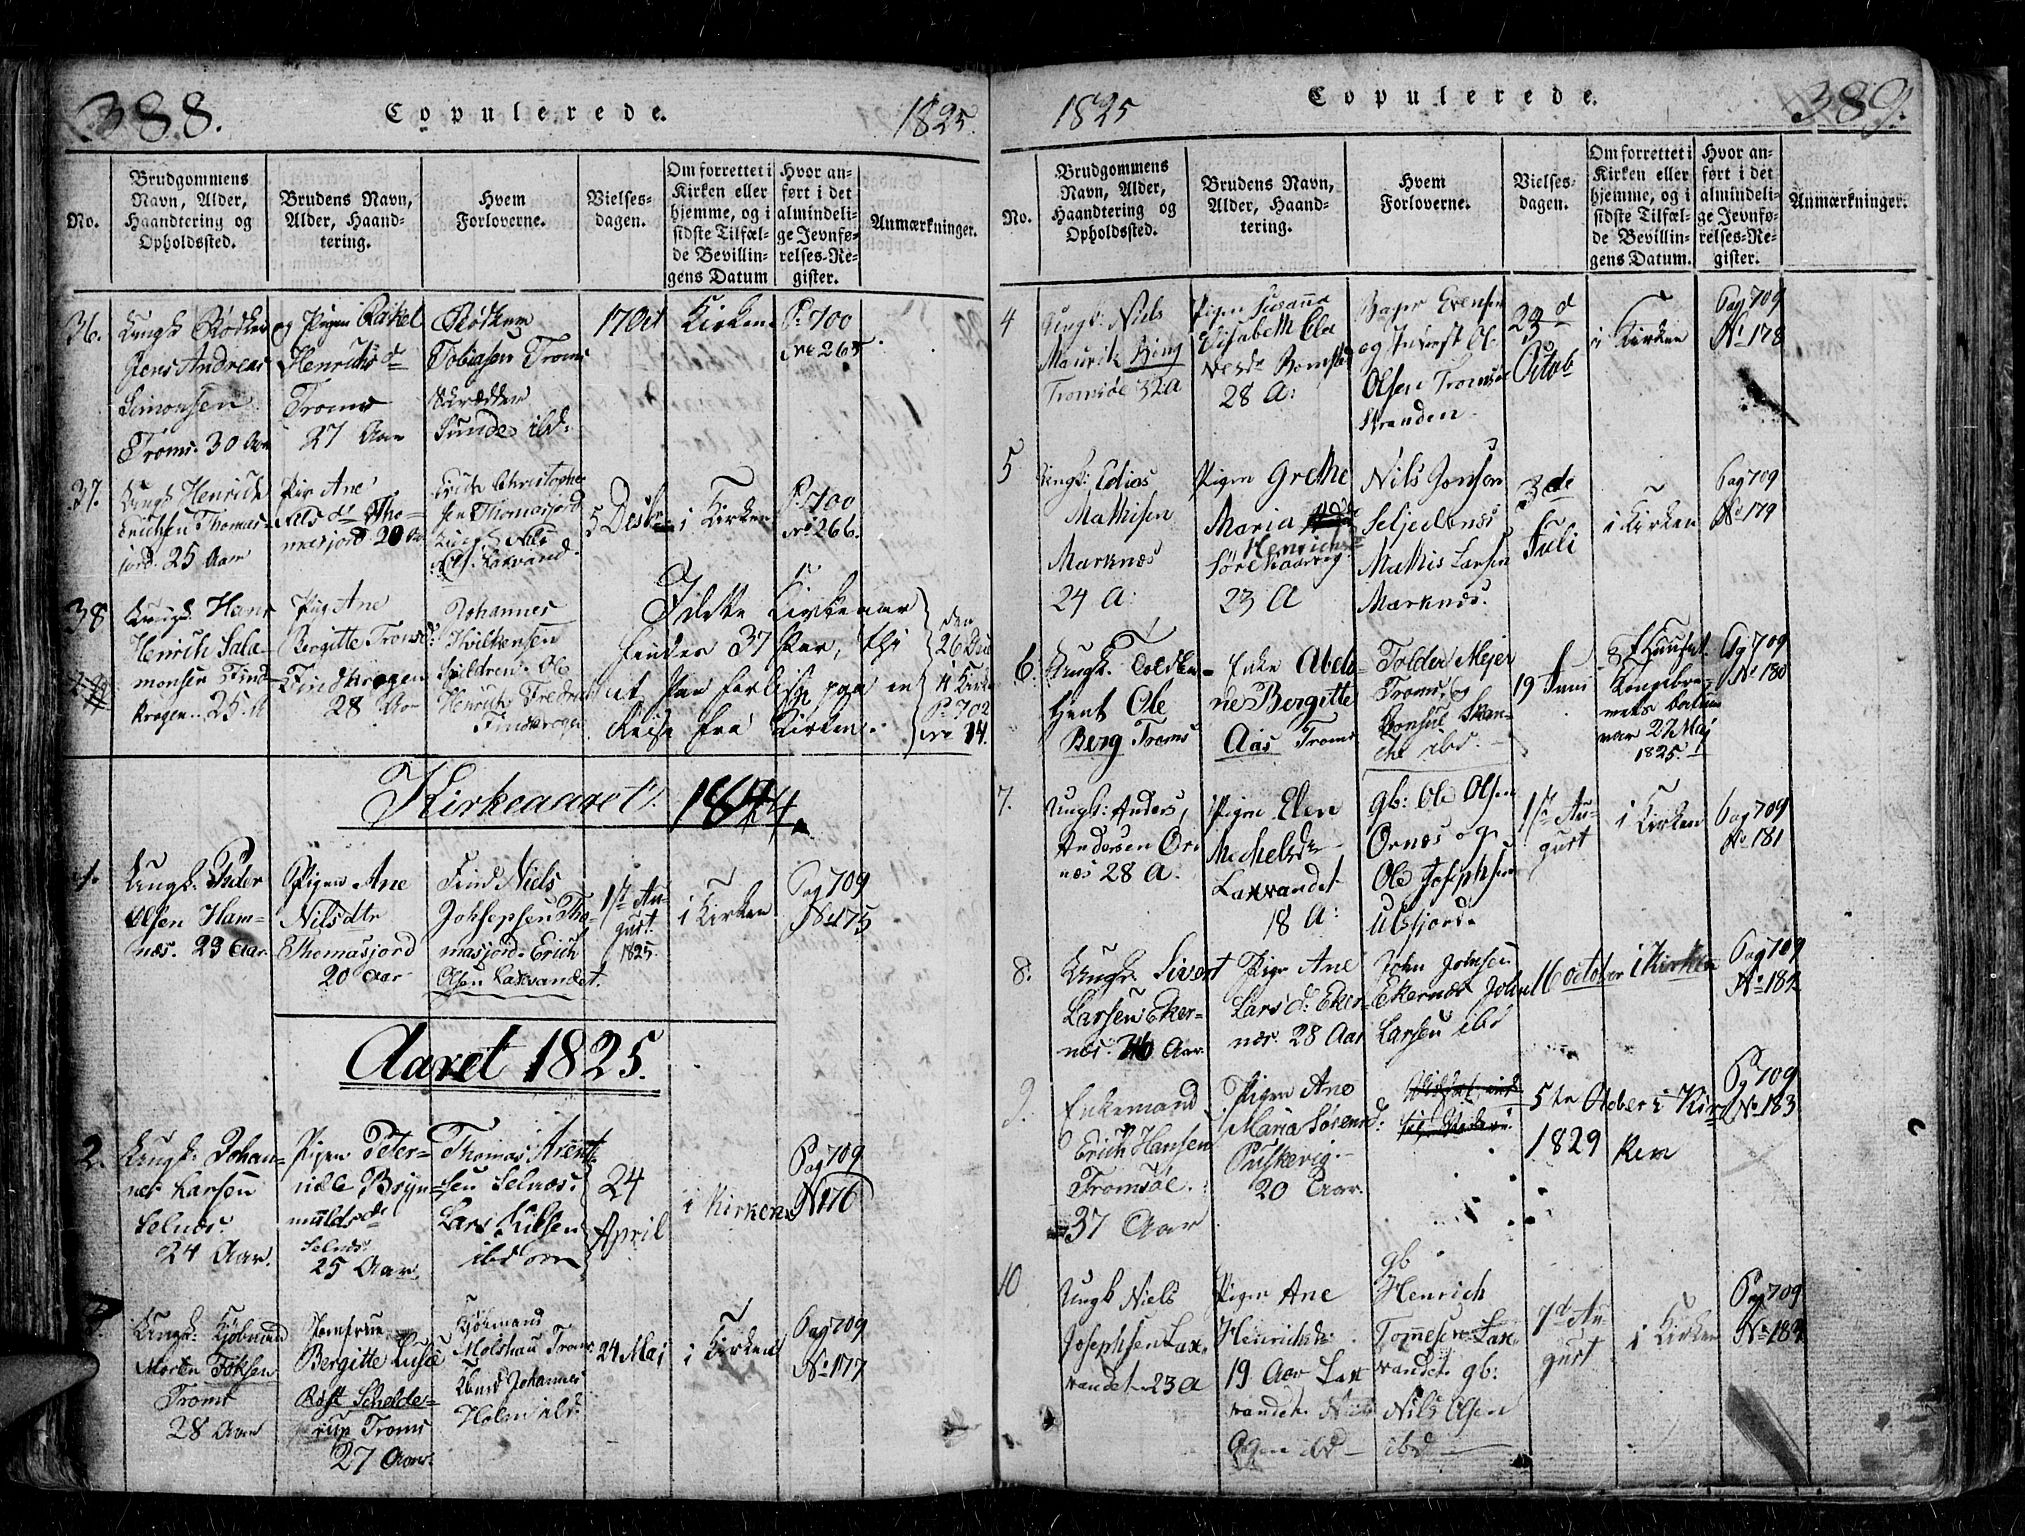 388.
Copulerede.
1825.
No.
Brudgommens
Navn, Alder,
Haandtering og
Opholdssted.
Brudens Navn,
Alder, Haand-
tering.
Hvem
Forloverne.
Vielses-
dagen.
Om forrettet i
Kirken eller
hjemme, og i
sidste Tilfæl-
de Bevillin-
gens Datum
Hvor an-
ført i det
almindeli-
ge Jevnfø-
relses-Re-
gister.
Anmærkninger.
36.
Ungk Rødker
Jens Andreas
Simonsen
Troms. 30 Aar
og Pigen Rakel
Henrichs d
Troms
27 Aar
Rødker
Tobiasen Troms
Skrædder
Sunde ibd.
17 Oct
Kirken
P. 700
No 265
37.
Ungk Henrich
Erichsen Thomas-
jord. 25 Aar
Pig Ane
Nils d. Tho-
masjord 20 Aar
Erich Christophe-
sen Thomasjord
Nils
Ols. Laxvand.
5 Decbr
i Kirken
P. 700
No 266.
38
Ungk. Hans
Henrich Sala-
monsen Find-
krogen. 25 A
Pig Ane
Bergitte Troms d.
Findkrogen
28 Aar
Johannes
Hvilhensen
Spildren. Ole
Henrich Fredrich
Findkrogen
I dette Kirkeaar
findes 37 Par, thi
et Par forliste paa en
Reise fra Kirken.
den
26 Dec
i Kirken
P. 702
No 14.
Kirkeaaret. 1824.
1.
Ungk. Peder
Olsen Ham-
næs. 23 Aar.
Pigen Ane
Nilsdtr
Thomasjord
20 Aar
Find Niels
Johsepsen Tho-
masjord. Erich
Olsen Laxvandet.
1ste Au-
gust.
1825.
i Kirken
Pag 709
No 175
Aaret 1825.
2.
Ungk. Johan-
nes Larsen
Selnæs.
24 Aar.
Pigen Peter-
nille Bryn-
mulds d
Selnæs
25 Aar.
Thomas Arent-
sen Selnæs.
Lars Nilsen
ibd om
24
April
i Kirken
Pag 709
No 176
Ungk. Kjøbmand
Morten Føksen
Troms
28 Aar
Jomfrue
Bergitte Lusie
Røst Schelde-
rup Troms
27 Aar.
Kjøbmand
Molshau Troms
Kbmd Johannes
Holm ibd.
24 Mai
i Kirken
Pag 709
No 177
1825
Copulerede.
389.
No.
Brudgommens
Navn, Alder,
Haandtering og
Opholdssted.
Brudens Navn,
Alder, Haand-
tering.
Hvem
Forloverne.
Vielses-
dagen.
Om forrettet i
Kirken eller
hjemme, og i
sidste Tilfæl-
de Bevillin-
gens Datum.
Hvor an-
ført i det
almindeli-
ge Jevnfø-
relses-Re-
gister.
Anmærkninger.
4
Ungk: Niels
Mauritz Bing
Tromsøe 32 A
Pigen Susanna
Elisabeth
28 A:
Bager Evensen
Olsen Tromsøe
Stranden.
23 d
i Kirken
Pag 709
No 178
5
Ungk: Edias
Mathisen
Marknæs
24 A:
Pigen Grethe
Maria
Henrichs
23 A
Nils Jonsen
Seljeelvnæs
Mathis Larsen
Marknæs.
3 de
Juli
i Kirken
Pag 709
No 179
6.
Ungk. Toldbe-
tjent Ole
Berg Troms
Enke Abelo-
ne Bergitte
Aas Troms
Tolder Mejer
Troms, og
Consul Skan-
che ibd.
19 Juni
i Huuset
Kongebre-
vets datum
var 27 Maj
1825.
Pag 709
No 180
7.
Ungk: Anders
Andersen Or-
næs 28 A.
Pigen Elen
Michelsdr
Laxvandet
18 A:
gb: Ole Olsen
Ornæs og
Ole Josephsen
Ulsfjord.
1ste Au-
gust
i Kirken
Pag 709
No 181
8.
Ungk. Sivert
Larsen Eker-
næs. 26 Aar.
Pige Ane
Lars d. Eker-
næs. 28 Aar
John Johnsen
Ekernæs John
Larsen ibd
16 october
i Kirken
Pag 709
No 182
9.
Enkemand
Erich Hansen
Tromsøe.
37 Aar
Pigen Ane
Maria Sørens d:
Puskevig.
20 Aar.
5 te Octber
1829
i Kir
ken
Pg 709
No 183
10
Ungk Niels
Josephsen Lax-
vandet 23 A
Pigen Ane
Heinrichsdr
19 Aar Lax
vandet. Nils
Olsen ibd
gb
Henrich
Tommesen Lax
vandet. gb:
Nils Olsen
ibd
7 d Au-
gust
i Kirken
Pag 709
No 184